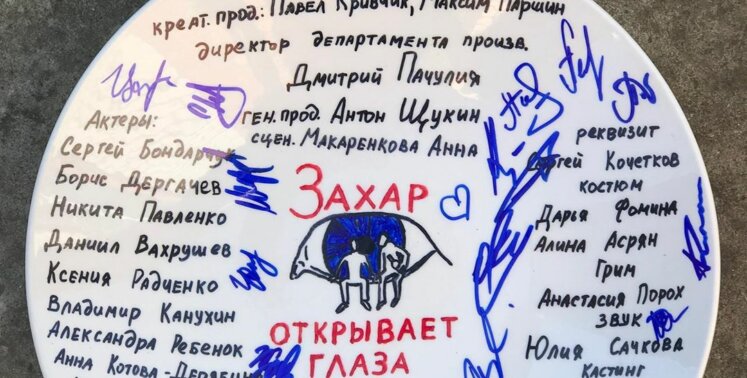 креат. прод.: Павел Кривчик, Максим Паршин
директор департамента произв.
Дмитрий Пачулия
ген. прод. Антон Щукин
сцен. Макаренкова Анна
Актеры:
Сергей Бондарчук
Борис Дергачев
Никита Павленко
Даниил Вахрушев
Ксения Радченко
Владимир Канухин
Александра Ребенок
Анна Котова-Дерябина
Захар
открывает
глаза
реквизит
Сергей Кочетков
костюм
Дарья Фомина
Алина Асрян
Грим
Анастасия Порох
звук
Юлия Сачкова
кастинг